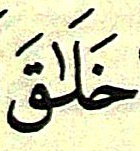 خَلَٰقَ